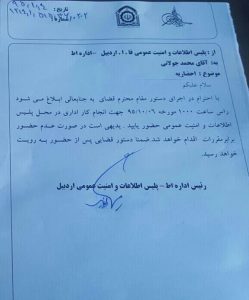 از : پلیس اطلاعات و امنیت عمومی فا.ا. اردبیل -اداره اط
به: آقای محمد جولانی
موضوع : احضاریه
سلام علیکم
با احترام در اجرای دستور مقام محترم قضائی به جنابعالی ابلاغ می شود
راس ساعت ۱۰۰۰ مورخه ۹۵/۱۰/۰۶ جهت انجام کار اداری در محل پلیس
اطلاعات و امنیت عمومی حضور یابید . بدیهی است در صورت عدم حضور
برابر مقررات اقدام خواهد شد. ضمنا دستور قضایی پس از حضور به رویت
خواهد رسید.
رئیس اداره اط - پلیس اطلاعات و امنیت عمومی اردبیل